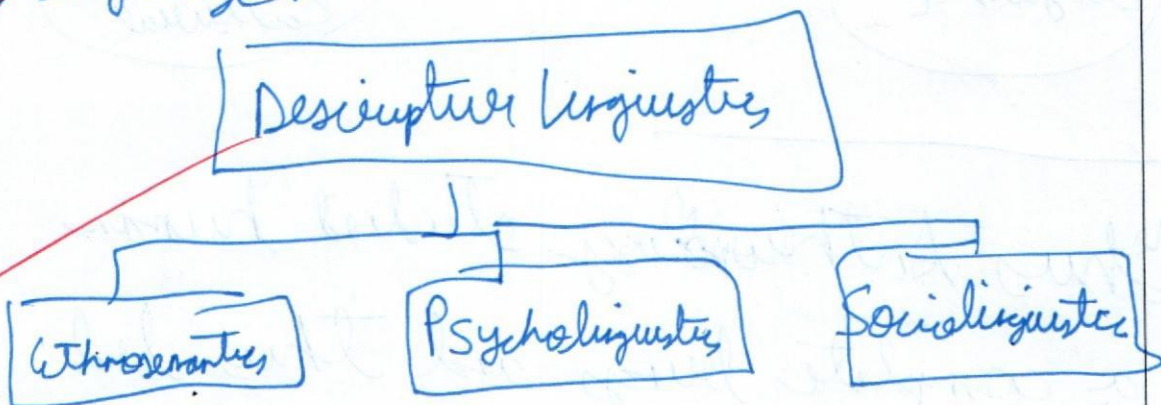 Descriptive Linguistics
Ethnosemantics
Psycholinguistics
Sociolinguistics